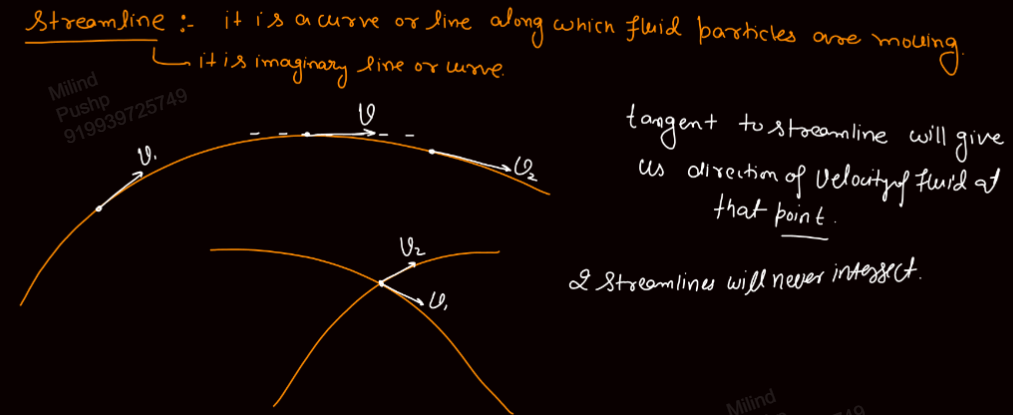 Streamline :- it is a curve or line along which fluid particles are moving.
it is imaginary line or curve.
Milind
Pushp
919939725749
V
V₁
V₂
tangent to streamline will give
us direction of velocity of fluid at
that point.
V₂
V₁
2 streamlines will never intersect.
Milind